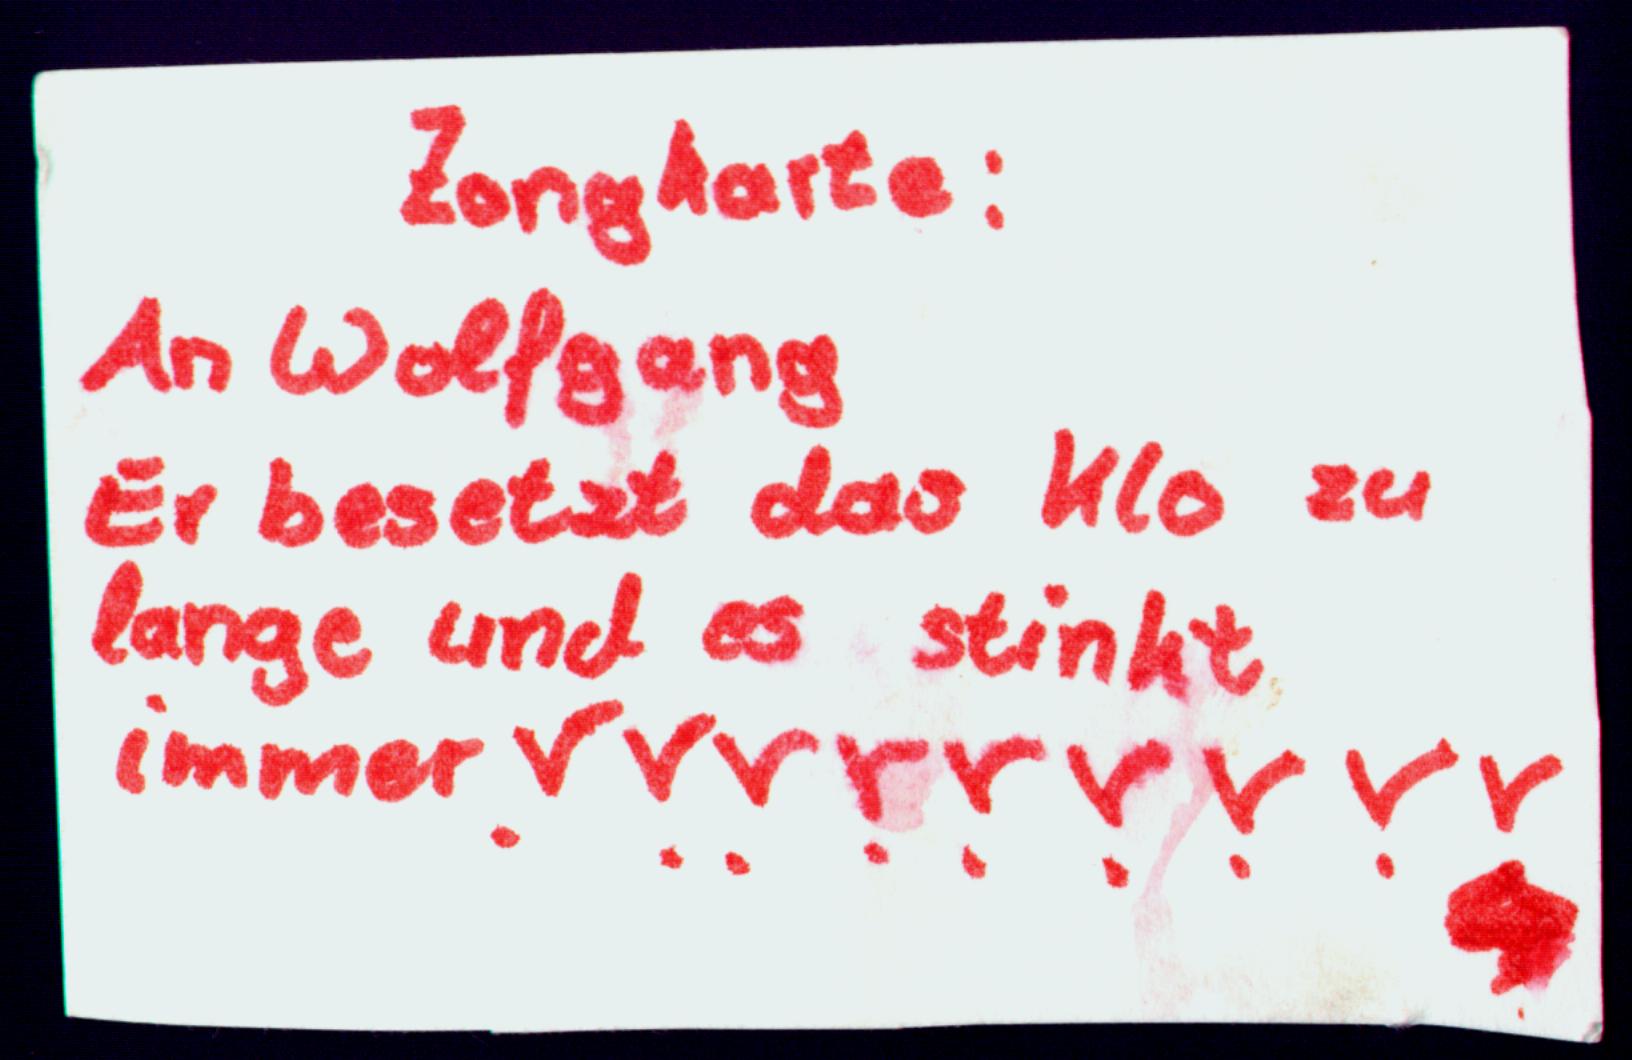 Zongkarte:
An Wolfgang
Er besetzt das Klo zu
lange und es stinkt
immer!!!!!!!!!